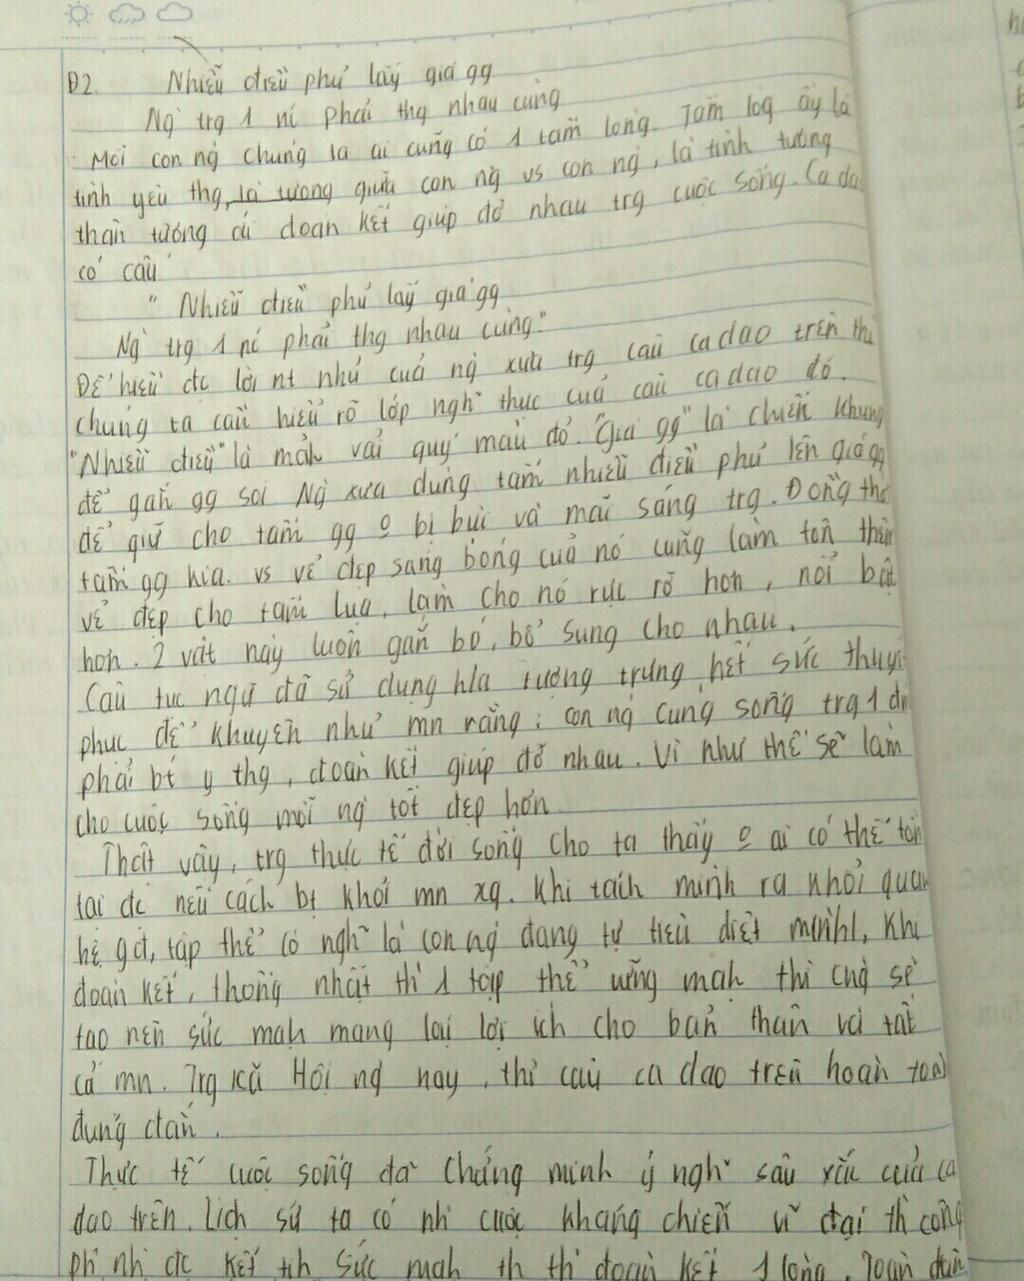 Đ2. Nhiễu điều phủ lấy giá gg
Ng trg 1 nc phải thg nhau cùng
Mỗi con ng chúng ta ai cũng có 1 tấm lòng. Tấm lòg ấy là
tình yêu thg, là tương giữa con ng vs con ng, là tình tương
thân tương ái đoàn kết giúp đỡ nhau trg cuộc sống. Ca da
có câu
" Nhiễu điều phủ lấy giá gg
Ng trg 1 nc phải thg nhau cùng."
Để hiểu đc lời nt nhủ của ng xưa trg câu ca dao trên thì
chúng ta cần hiểu rõ lớp nghĩ thực của câu ca dao đó.
"Nhiễu điều" là mảh vải quý màu đỏ. "Giá gg" là chiếc khung
để gắn gg soi Ng xưa dùng tấm nhiễu điều phủ lên giá gg
để giữ cho tấm gg o bị bụi và mãi sáng trg. Đồng thờ
tấm gg kia. vs vẻ đẹp sáng bóng của nó cũng làm tôn thêm
vẻ đẹp cho tấm lụa, làm cho nó rực rỡ hơn, nổi bật
hơn. 2 vật này luôn gắn bó, bổ sung cho nhau.
Câu tục ngữ đã sử dụng h/a tượng trưng hết sức thuyế
phục để khuyên nhủ mn rằng: con ng cùng sống trg 1 đn
phải bt y thg, đoàn kết giúp đỡ nhau. Vì như thế sẽ làm
cho cuộc sống mỗi ng tốt đẹp hơn.
Thật vậy, trg thực tế đời sống cho ta thấy o ai có thể tồn
tại đc nếu cách bt khỏi mn xq. Khi tách mình ra khỏi quan
hệ gđ, tập thể có nghĩ là con ng đang tự tiêu diệt mình, Khi
đoàn kết, thống nhất thì 1 tập thể vững mạh thì cug sẽ
tạo nên sức mạh mang lại lợi ích cho bản thân và tất
cả mn. Trg xã Hội ng nay, thì câu ca dao trên hoàn toà
đúng đắn.
Thực tế cuộc sống đã chứng minh ý nghĩ sâu xắc của ca
dao trên. Lịch sử ta có nh cuộc kháng chiến vĩ đại th công
nh đc kết tih sức mạh th thì đoàn kết 1 lòng. Toàn dân